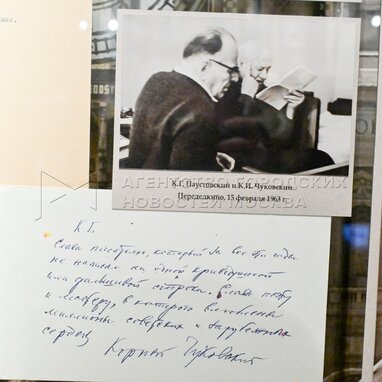 К.Г. Паустовский и К.И. Чуковский.
Переделкино, 15 февраля 1963 г.
АГЕНТСТВО ГОРОДСКИХ
НОВОСТЕЙ МОСКВА
К.Г.
Слава писателю, который за все эти годы
не написал ни одной криводушной
или фальшивой строки. Слава поэту
и мастеру, в которого влюблены
миллионы советских и зарубежных
сердец
Корней Чуковский